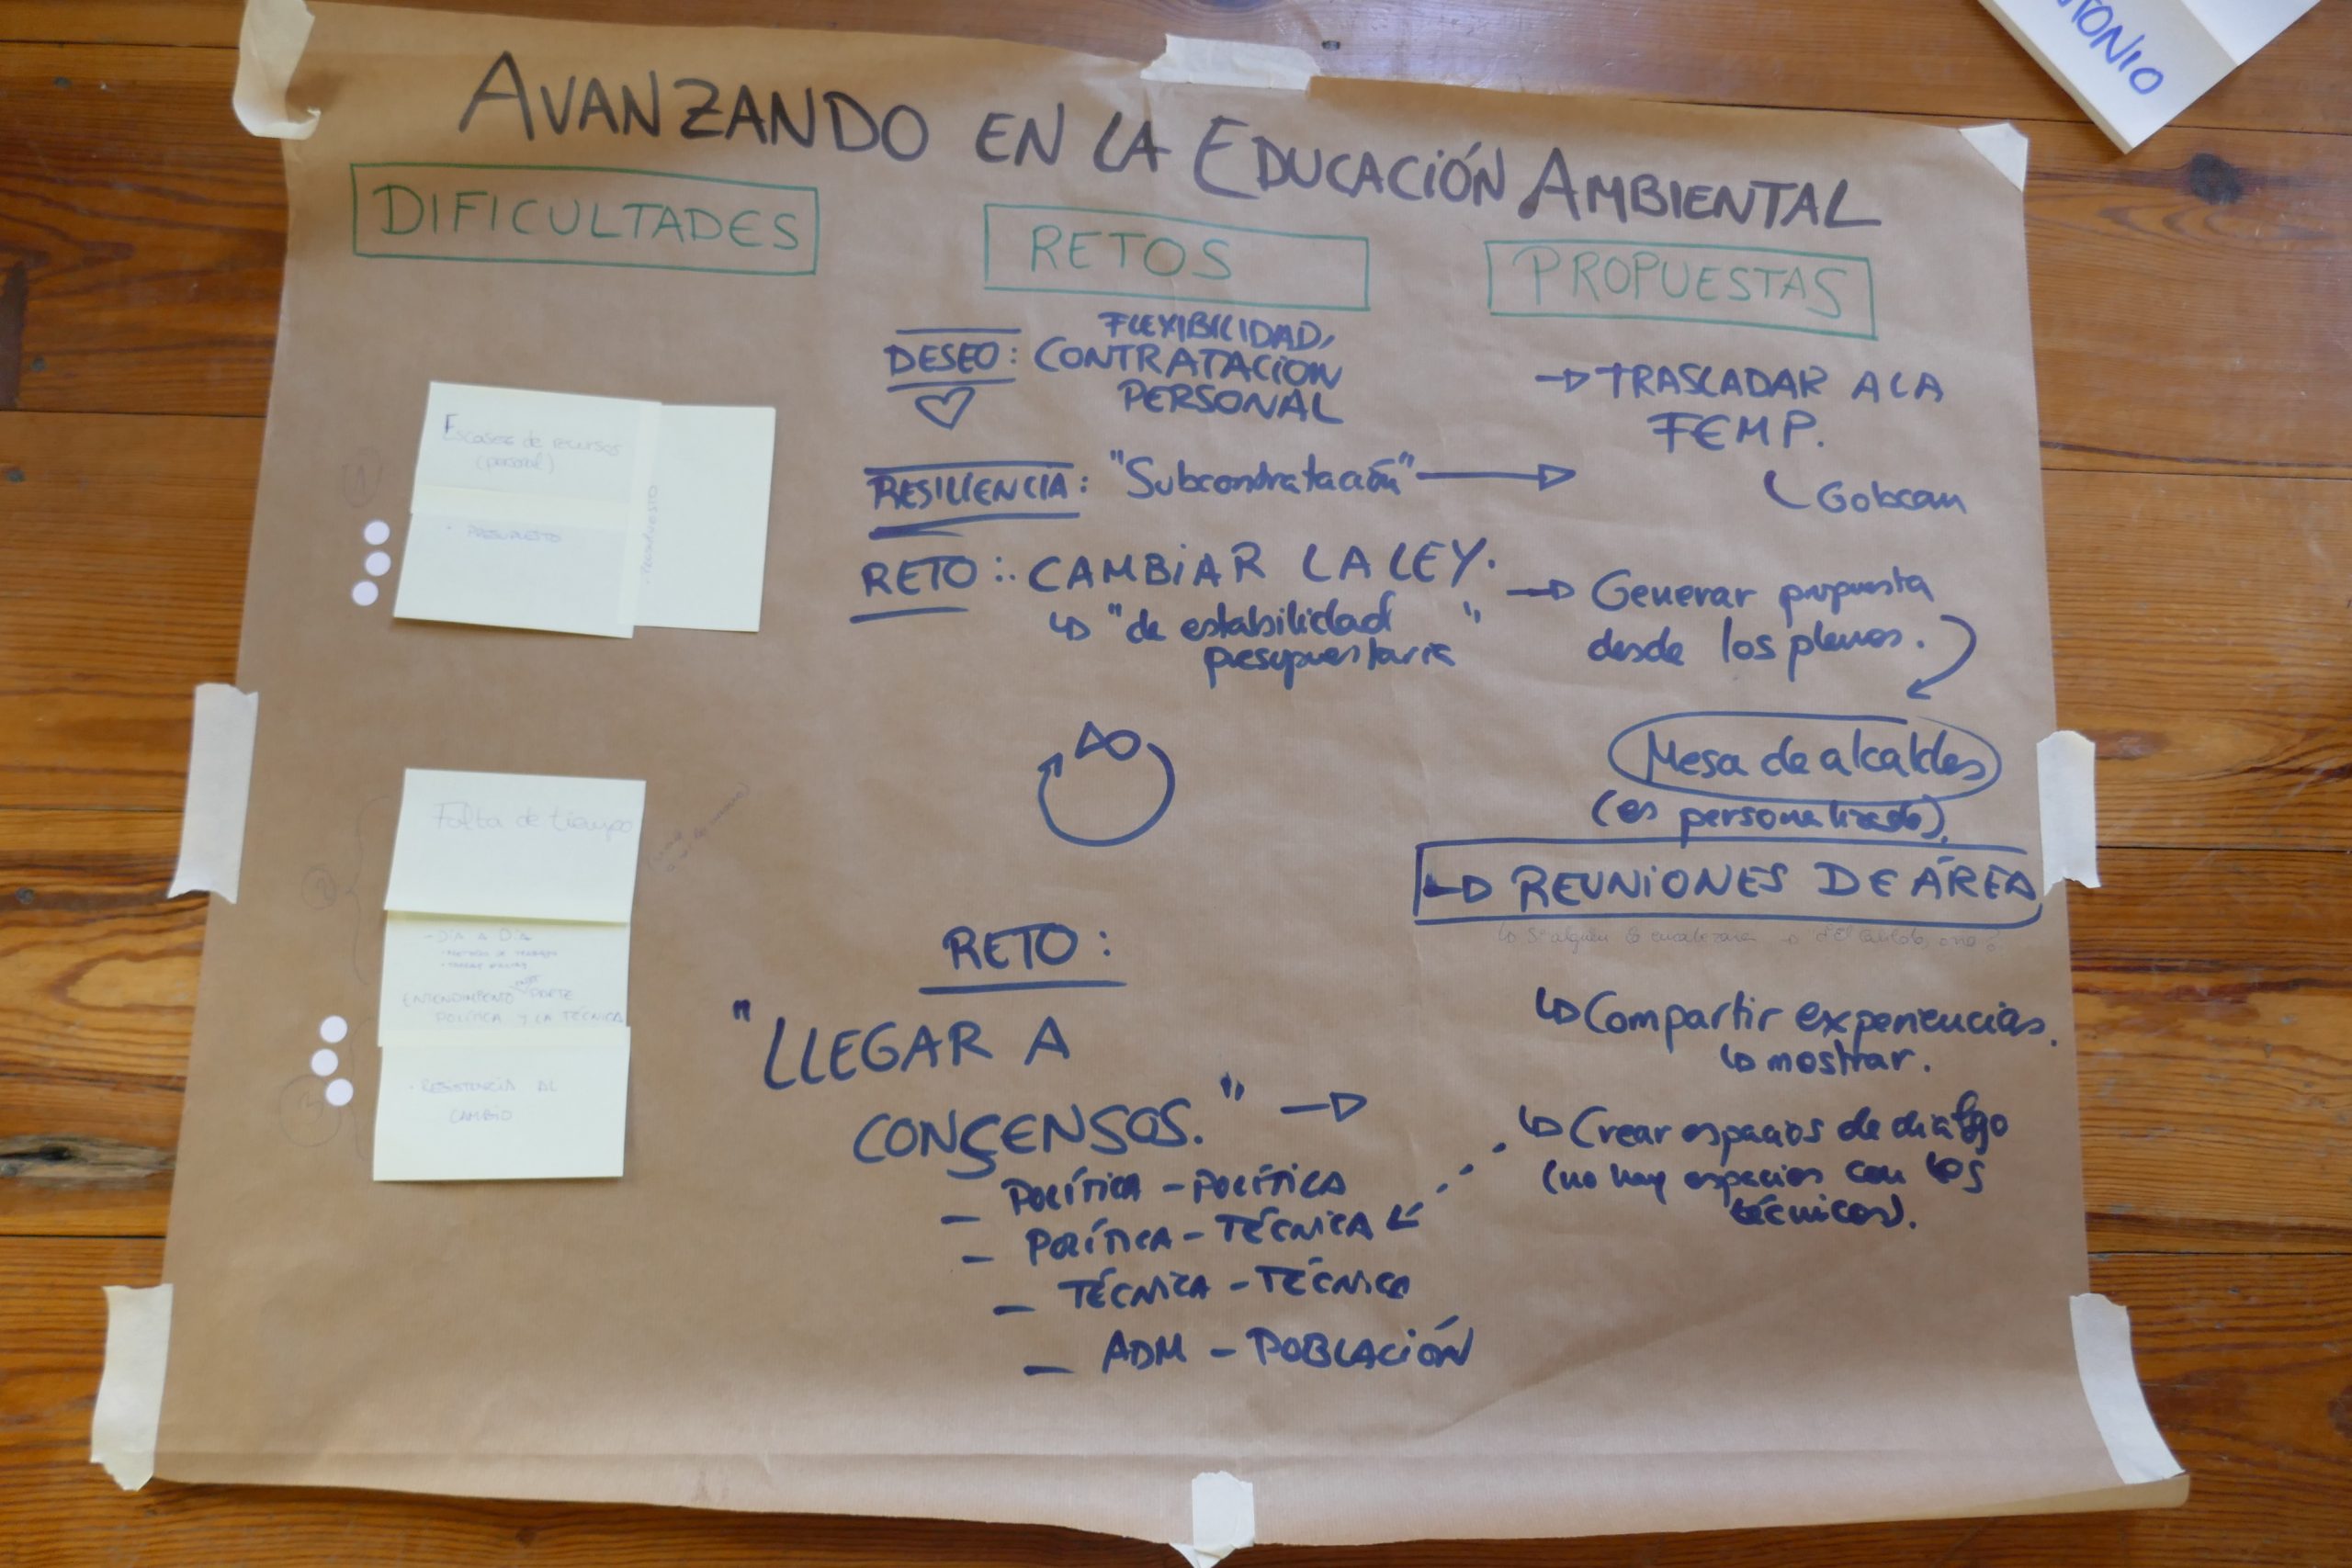 AVANZANDO EN LA EDUCACIÓN AMBIENTAL
DIFICULTADES
Escasez de recursos
(personal)
· PRESUPUESTO
Falta de tiempo
- DÍA A DÍA
ENTENDIMIENTO PARTE
POLÍTICA Y LA TÉCNICA
· RESISTENCIA AL
CAMBIO
RETOS
FLEXIBILIDAD,
DESEO: CONTRATACION
PERSONAL
RESILIENCIA: "Subcontratación"
RETO: CAMBIAR LA LEY.
"de estabilidad
presupuestaria"
RETO:
"LLEGAR A
CONSENSOS."
- POLÍTICA - POLÍTICA
- POLÍTICA - TÉCNICA
- TÉCNICA - TÉCNICA
- ADM - POBLACIÓN
PROPUESTAS
→ TRASLADAR A LA
FEMP.
Gobcan
→ Generar propuesta
desde los plenos.
Mesa de alcaldes
(es personalizado).
→ REUNIONES DE ÁREA
↳ Compartir experiencias.
↳ mostrar.
↳ Crear espacios de diálogo
(no hay espacios con los
técnicos).
TONIO